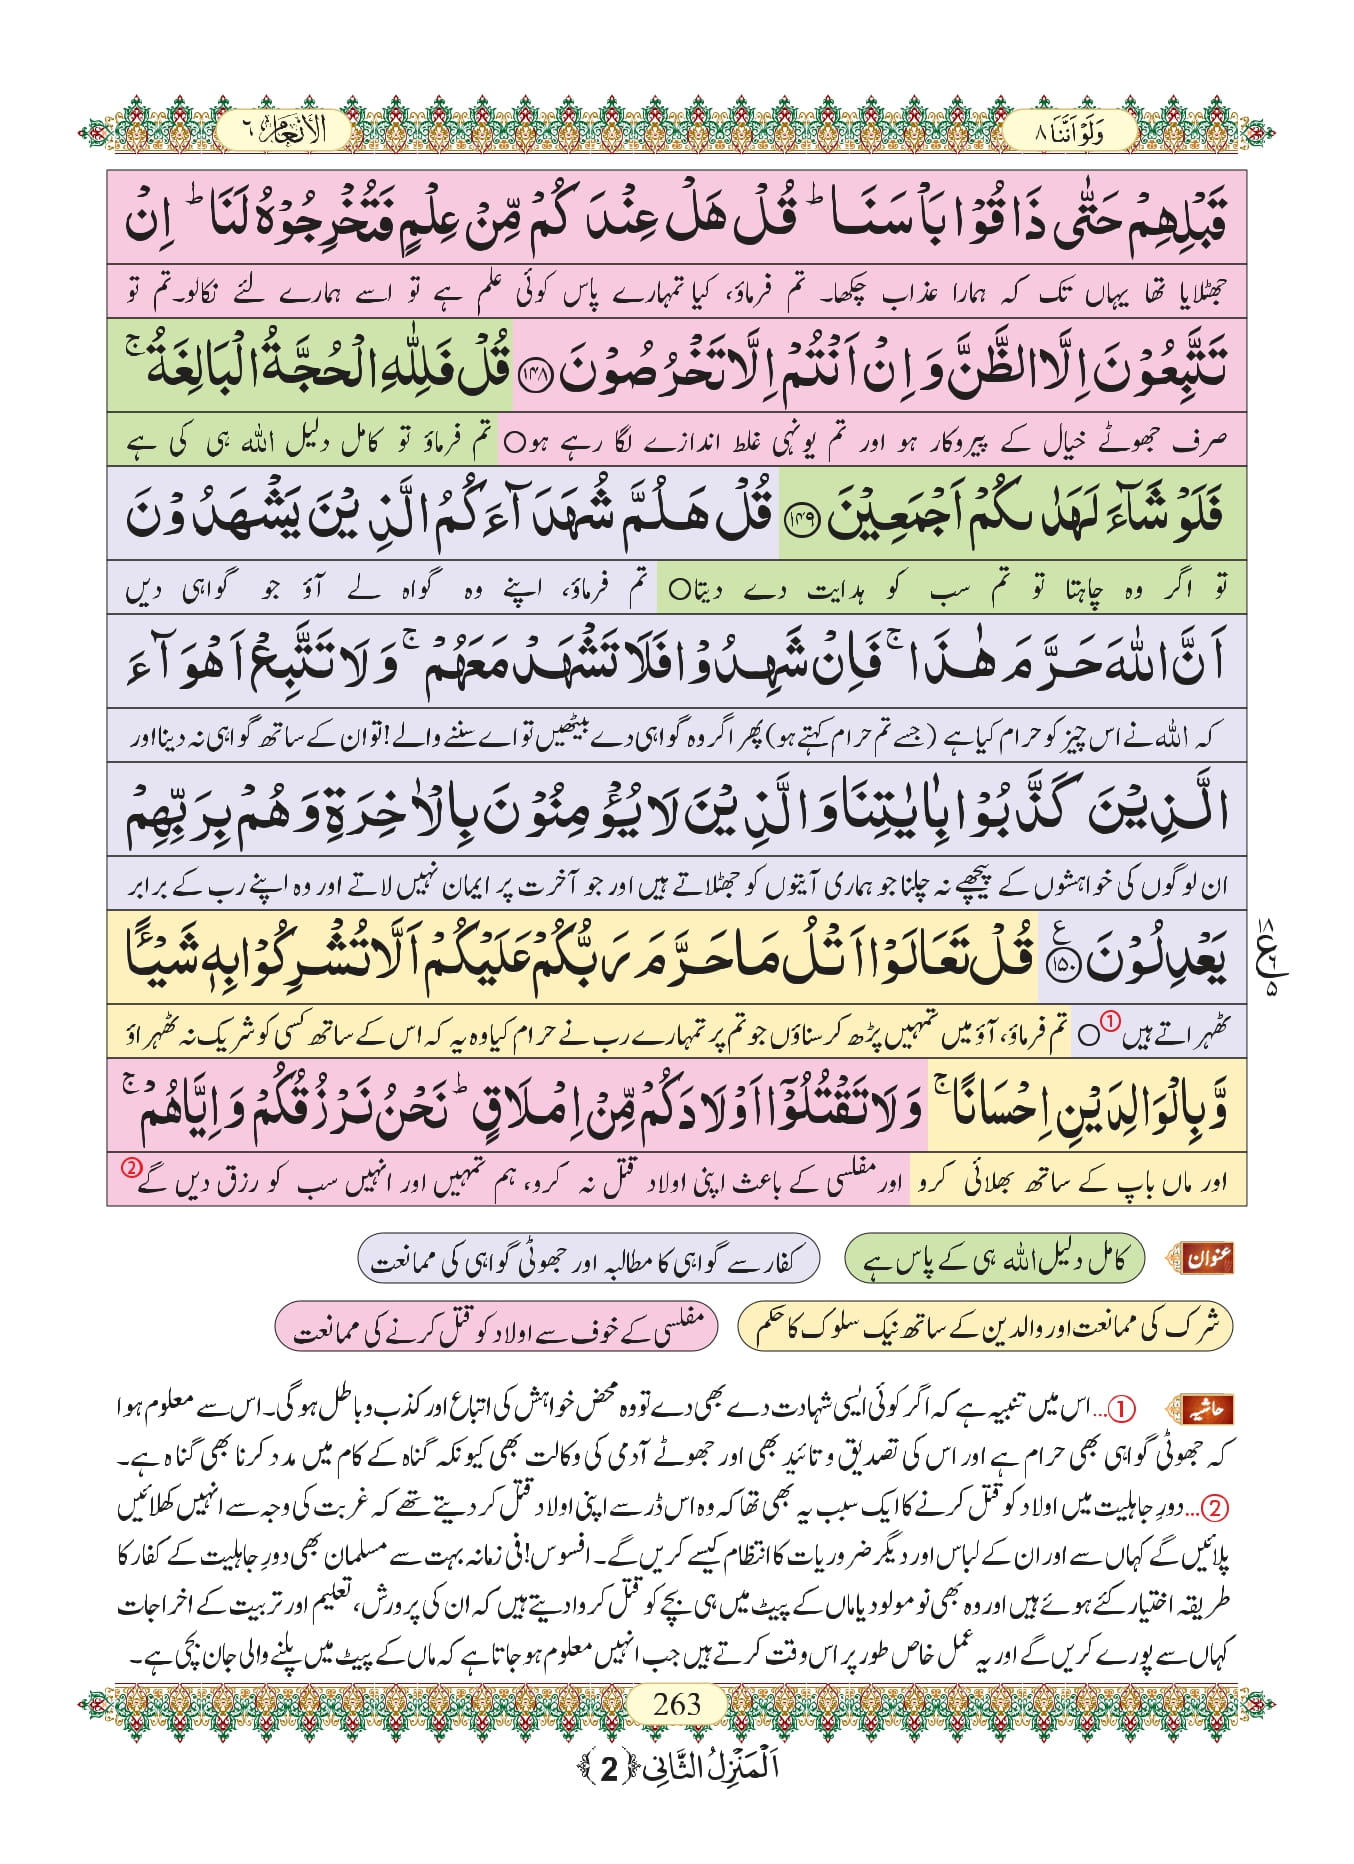 وَلَوْ اَنَّنَا ٨
الأنعام ٦
قَبْلِهِمْ حَتّٰى ذَاقُوْا بَاْسَنَا ؕ قُلْ هَلْ عِنْدَكُمْ مِّنْ عِلْمٍ فَتُخْرِجُوْهُ لَنَا ؕ اِنْ
جھٹلایا تھا یہاں تک کہ ہمارا عذاب چکھا۔ تم فرماؤ، کیا تمہارے پاس کوئی علم ہے تو اسے ہمارے لئے نکالو۔ تم تو
تَتَّبِعُوْنَ اِلَّا الظَّنَّ وَ اِنْ اَنْتُمْ اِلَّا تَخْرُصُوْنَ ﴿۱۴۸﴾ قُلْ فَلِلّٰهِ الْحُجَّةُ الْبَالِغَةُ ۚ
صرف جھوٹے خیال کے پیروکار ہو اور تم یونہی غلط اندازے لگا رہے ہو○ تم فرماؤ تو کامل دلیل اللہ ہی کی ہے
فَلَوْ شَآءَ لَهَدٰىكُمْ اَجْمَعِيْنَ ﴿۱۴۹﴾ قُلْ هَلُمَّ شُهَدَآءَكُمُ الَّذِيْنَ يَشْهَدُوْنَ
تو اگر وہ چاہتا تو تم سب کو ہدایت دے دیتا○ تم فرماؤ، اپنے وہ گواہ لے آؤ جو گواہی دیں
اَنَّ اللّٰهَ حَرَّمَ هٰذَا ۚ فَاِنْ شَهِدُوْا فَلَا تَشْهَدْ مَعَهُمْ ۚ وَ لَا تَتَّبِعْ اَهْوَآءَ
کہ اللہ نے اس چیز کو حرام کیا ہے (جسے تم حرام کہتے ہو) پھر اگر وہ گواہی دے بیٹھیں تو اے سننے والے! تو ان کے ساتھ گواہی نہ دینا اور
الَّذِيْنَ كَذَّبُوْا بِاٰيٰتِنَا وَ الَّذِيْنَ لَا يُؤْمِنُوْنَ بِالْاٰخِرَةِ وَ هُمْ بِرَبِّهِمْ
ان لوگوں کی خواہشوں کے پیچھے نہ چلنا جو ہماری آیتوں کو جھٹلاتے ہیں اور جو آخرت پر ایمان نہیں لاتے اور وہ اپنے رب کے برابر
يَعْدِلُوْنَ ﴿۱۵۰﴾ ع قُلْ تَعَالَوْا اَتْلُ مَا حَرَّمَ رَبُّكُمْ عَلَيْكُمْ اَلَّا تُشْرِكُوْا بِهٖ شَيْـًٔا
۱۸ ع ۶ ۵
ٹھہراتے ہیں① ○ تم فرماؤ، آؤ میں تمہیں پڑھ کر سناؤں جو تم پر تمہارے رب نے حرام کیا وہ یہ کہ اس کے ساتھ کسی کو شریک نہ ٹھہراؤ
وَّ بِالْوَالِدَيْنِ اِحْسَانًا ۚ وَ لَا تَقْتُلُوْۤا اَوْلَادَكُمْ مِّنْ اِمْلَاقٍ ؕ نَحْنُ نَرْزُقُكُمْ وَ اِيَّاهُمْ ۚ
اور ماں باپ کے ساتھ بھلائی کرو اور مفلسی کے باعث اپنی اولاد قتل نہ کرو، ہم تمہیں اور انہیں سب کو رزق دیں گے②
عنوان کامل دلیل اللہ ہی کے پاس ہے کفار سے گواہی کا مطالبہ اور جھوٹی گواہی کی ممانعت
شرک کی ممانعت اور والدین کے ساتھ نیک سلوک کا حکم مفلسی کے خوف سے اولاد کو قتل کرنے کی ممانعت
حاشیہ ①... اس میں تنبیہ ہے کہ اگر کوئی ایسی شہادت دے بھی دے تو وہ محض خواہش کی اتباع اور کذب و باطل ہوگی۔ اس سے معلوم ہوا
کہ جھوٹی گواہی بھی حرام ہے اور اس کی تصدیق و تائید بھی اور جھوٹے آدمی کی وکالت بھی کیونکہ گناہ کے کام میں مدد کرنا بھی گناہ ہے۔
②... دورِ جاہلیت میں اولاد کو قتل کرنے کا ایک سبب یہ بھی تھا کہ وہ اس ڈر سے اپنی اولاد قتل کر دیتے تھے کہ غربت کی وجہ سے انہیں کھلائیں
پلائیں گے کہاں سے اور ان کے لباس اور دیگر ضروریات کا انتظام کیسے کریں گے۔ افسوس! فی زمانہ بہت سے مسلمان بھی دورِ جاہلیت کے کفار کا
طریقہ اختیار کئے ہوئے ہیں اور وہ بھی نومولود یا ماں کے پیٹ میں ہی بچے کو قتل کروا دیتے ہیں کہ ان کی پرورش، تعلیم اور تربیت کے اخراجات
کہاں سے پورے کریں گے اور یہ عمل خاص طور پر اس وقت کرتے ہیں جب انہیں معلوم ہو جاتا ہے کہ ماں کے پیٹ میں پلنے والی جان بچی ہے۔
263
اَلْمَنْزِلُ الثَّانِی ﴿2﴾